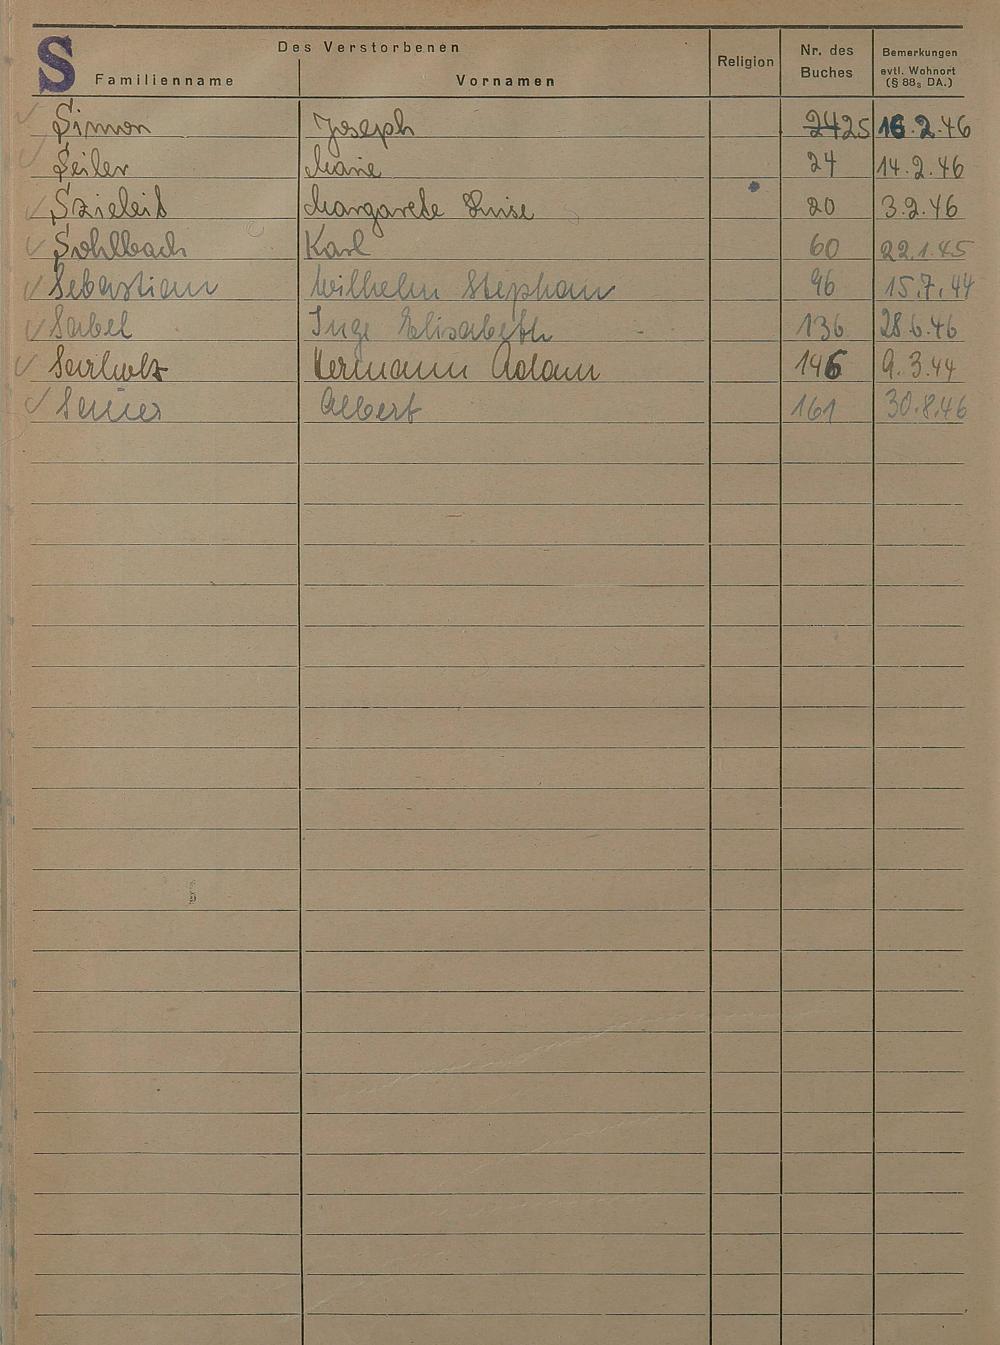 S
Des Verstorbenen
Familienname Vornamen Religion Nr. des Buches Bemerkungen evtl. Wohnort (§ 88₃ DA.)
Simon Joseph 24 25 16.2.46
Seiler Marie 24 14.2.46
Szieleit Margarete Luise 20 3.2.46
Sohlbach Karl 60 22.1.45
Sebastian Wilhelm Stephan 96 15.7.44
Sabel Inge Elisabeth 136 28.6.46
Hermann Adam 146 9.3.44
Albert 161 30.8.46